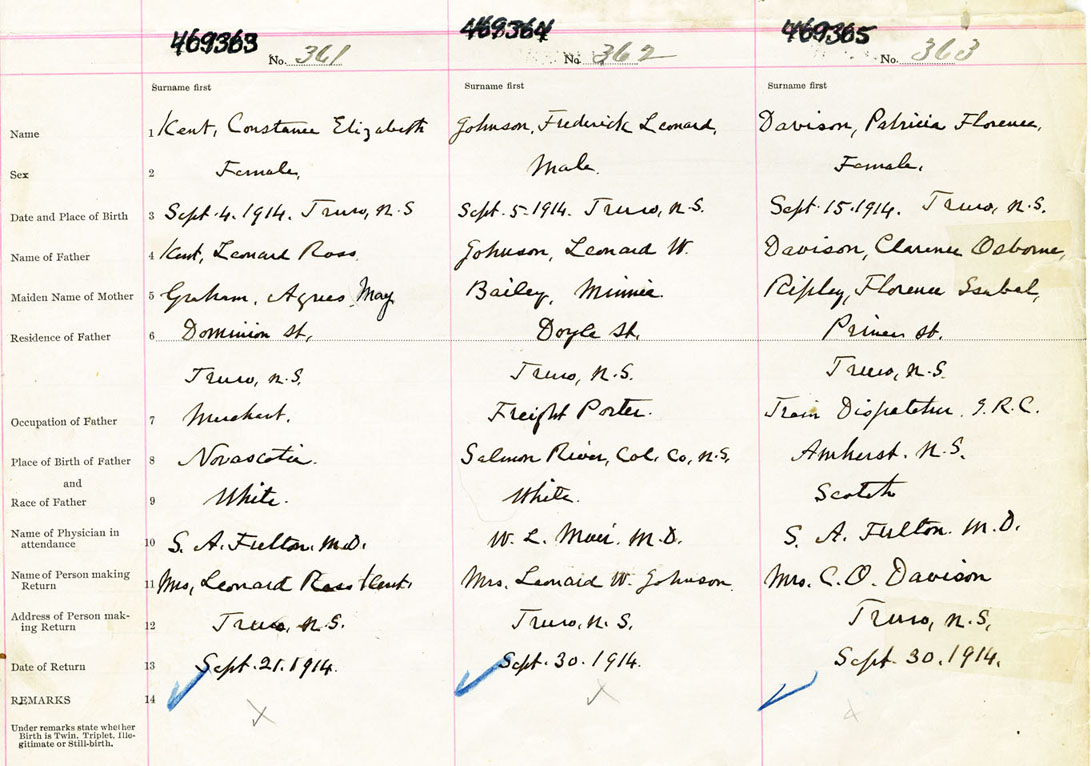 469363 469364 469365
No. 361 No. 362 No. 363
Surname first Surname first Surname first
Name 1 Kent, Constance Elizabeth Johnson, Frederick Leonard, Davison, Patricia Florence,
Sex 2 Female, Male. Female.
Date and Place of Birth 3 Sept. 4. 1914. Truro, N.S Sept. 5. 1914. Truro, N.S. Sept. 15. 1914. Truro, N.S.
Name of Father 4 Kent, Leonard Ross. Johnson, Leonard W. Davison, Clarence Osborne,
Maiden Name of Mother 5 Graham, Agnes May Bailey, Minnie. Ripley, Florence Isabel,
Residence of Father 6 Dominion St, Doyle St. Prince St.
Truro, N.S. Truro, N.S. Truro, N.S.
Occupation of Father 7 Merchant. Freight Porter. Train Dispatcher, I.R.C.
Place of Birth of Father 8 Novascotia. Salmon River, Col. Co, N.S. Amherst. N.S.
and
Race of Father 9 White. White. Scotch
Name of Physician in attendance 10 S. A. Fulton. M.D. W. L. Muir. M.D. S. A. Fulton. M.D.
Name of Person making Return 11 Mrs, Leonard Ross Kent. Mrs. Leonard W. Johnson. Mrs. C. O. Davison
Address of Person mak-ing Return 12 Truro, N.S. Truro, N.S. Truro, N.S,
Date of Return 13 Sept. 21. 1914. Sept. 30. 1914. Sept. 30. 1914.
REMARKS 14
Under remarks state whether
Birth is Twin, Triplet, Ille-
gitimate or Still-birth.